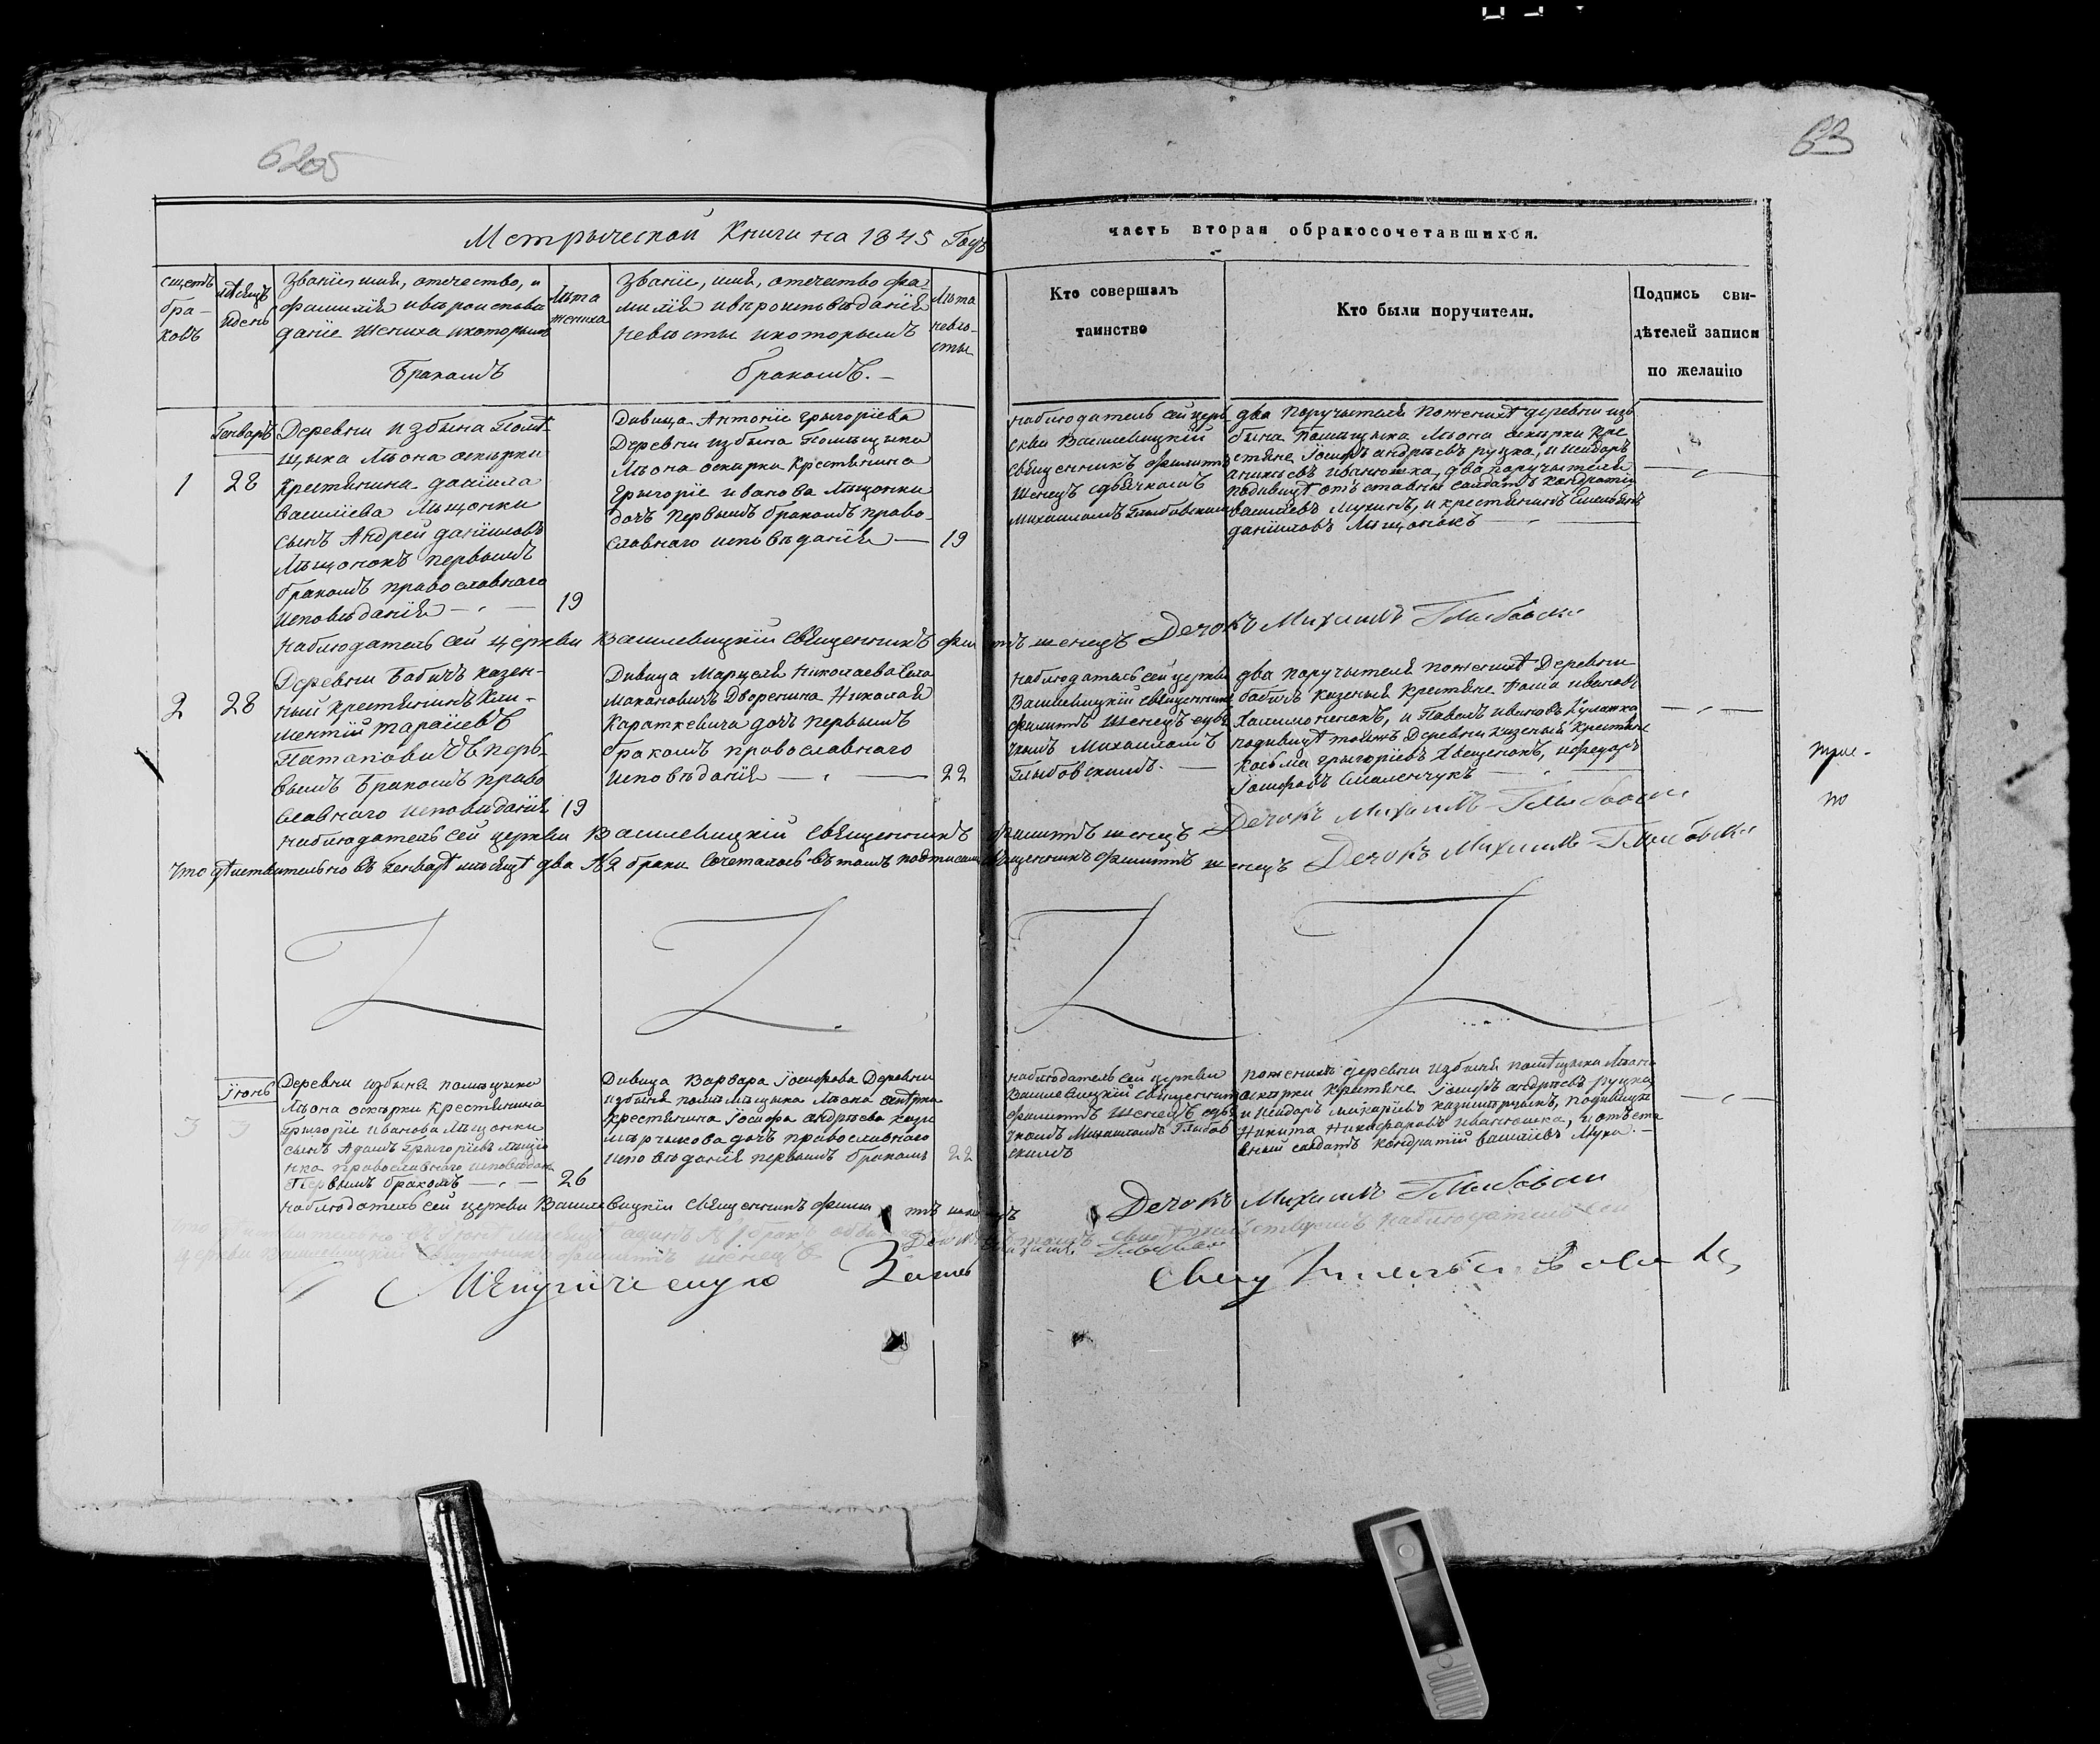 6205
63
Метрыческой Книги на 1845 Годъ
часть вторая обракосочетавшихся.
счетъ
бра-
ковъ
мѣсяцъ
идень
Званіе, имя, отечество, и
фамилія ивѣроисповѣ
даніе жениха икоторымъ
Бракомъ
Лѣта
жениха
Званіе, имя, отечество фа-
милія ивѣроисповѣданія
невѣсты икоторымъ
бракомъ.-
Лѣта
невѣ-
сты
Кто совершалъ
таинство
Кто были поручители.
Подпись сви-
дѣтелей записи
по желанію
Генварь
1
28
Деревни Избына Помѣ-
щыка Льона оскѣрки
Крестянина даніила
василіева Мыщонки
сынъ Андрей даніиловъ
Мыщонокъ первымъ
бракомъ православнаго
исповѣданія
19
Дивица Антоніе Грыгоріева
Деревни избына Помѣщыка
Льона оскирки Крестянина
Грыгоріе иванова Мыщонки
дочъ Первымъ бракомъ право-
славнаго исповѣданія
19
наблюдатель сей церк
сквы Вашлевицкій
Священникъ филиптъ
шенецъ сдьячкомъ
михаиломъ Глыбовскимъ
два Поручытеля Поженихѣ деревни изб
бына Помѣщыка Льона оскѣрки Кре
стяне Іосифъ андрѣевъ руцка, и исидоръ
иванюшка, два поручытеля
подивицѣ отъставный салдатъ кандратій
василіевъ Мукинъ, и крестянинъ Емельянъ
даніиловъ Мыщонокъ
наблюдатель сей церкви Вашлевицкій Священникъ филиптъ шенецъ Дечокъ Михаилъ Глыбовски
2
28
Деревни Бабичъ казен-
ный крестянинъ Кли-
ментій тарасіевъ
Патаповичъ перь-
вымъ Бракомъ право
славнаго исповѣданія
19
Дивица Марцеля Николаева Села
Макановичъ Дворенина Николая
Караткевича дочъ первымъ
бракомъ православнаго
исповѣданія
22
наблюдатель сей церкви
Вашлевицкій священникъ
филиптъ шенецъ сдья
чкомъ Михаиломъ
Глыбовскимъ.
два поручытеля поженихѣ Деревни
бабичъ казеныя крестяне фома ивановъ
Халимоненокъ, и Павелъ ивановъ Кулажка
подивицѣ тойжъ Деревни казеный крестяне
Косьма грыгоріевъ Хвещенокъ, ифедоръ
Іосифовъ Смаленчукъ
наблюдатель сей церкви Вашлевицкій Священникъ филиптъ шенецъ Дечокъ михаилъ Глыбовски
Что дѣиствительно въ генварѣ мѣсяцѣ два №2 браки сочеталось въ томъ подписали Священникъ филиптъ шенецъ Дечокъ Михаилъ Глыбовски
Іюнь
3
3
Деревни избына помѣщыка
Льона оскѣрки Крестянина
Грыгоріе иванова Мыщонки
сынъ Адамъ Грыгоріевъ Мыщо
нка православнаго исповѣдан
Первымъ бракомъ
26
Дивица Варвара Іосифова Деревни
избыня помѣщыка Льона оскѣрки
крестянина Іосифа андрѣева кази
мѣрчыкова дочъ православнаго
исповѣданія первымъ бракомъ
22
наблюдатель сей церкви
Вашлевицкій Священникъ
филиптъ шенецъ сдья
чкомъ Михаиломъ Глыбов
скимъ
поженихѣ деревни избыня помѣщыка Льона
оскѣрки крестяне Іосифъ андрѣевъ руцка,
и исидоръ макаріевъ казимѣрчыкъ, подивицѣ
Никита Никифаровъ иванюшка, и отъста
вный салдатъ кондратій василіевъ Мука.
наблюдатель сей церкви Вашлевицкій Священникъ филиптъ шенецъ Дечокъ Михаилъ Глыбовски
церкви Вашлевицкій Священникъ филиптъ шенецъ
Свящ